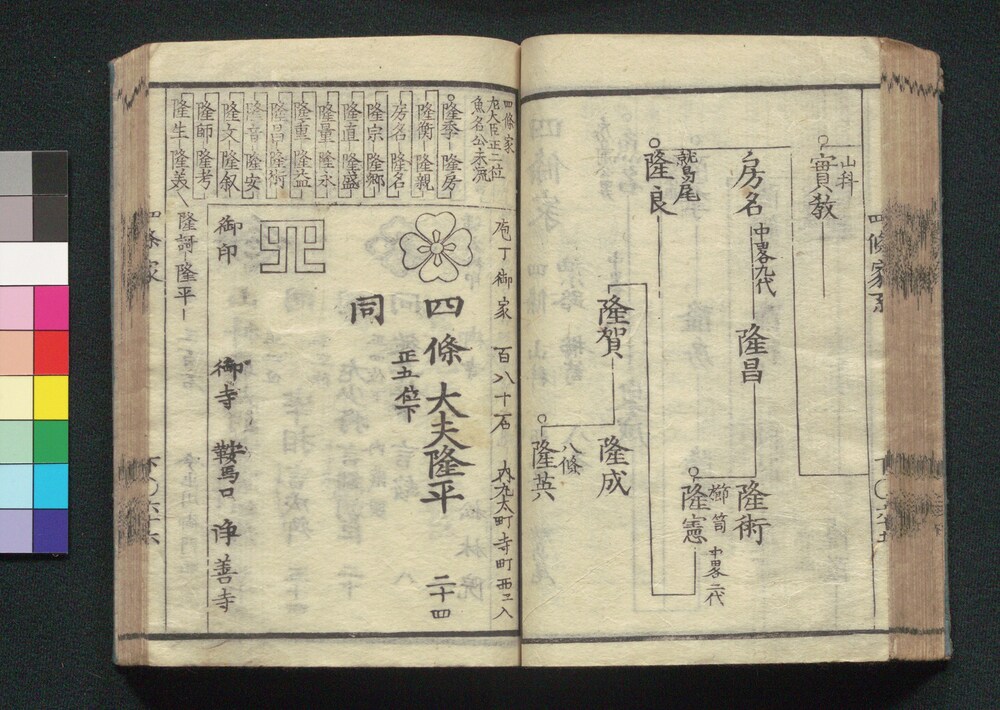 山科
實敎
房名
中畧九代
隆昌
隆術
鷲尾
隆良
櫛笥
隆憲
中畧二代
隆賀
隆成
八條
隆英
四條家系
四條家
左大臣正二位
魚名公末流
隆季 隆房
隆衡 隆親
房名 隆名
隆宗 隆郷
隆直 隆盛
隆量 隆永
隆重 隆益
隆昌 隆術
隆音 隆安
隆文 隆叙
隆師 隆考
隆生 隆美
隆謌 隆平
庖丁御家
百八十石
内丸太町寺町西エ入
四條大夫隆平
二十四
正五位下
同
御印
御寺
鞍馬口
浄善寺
四條家